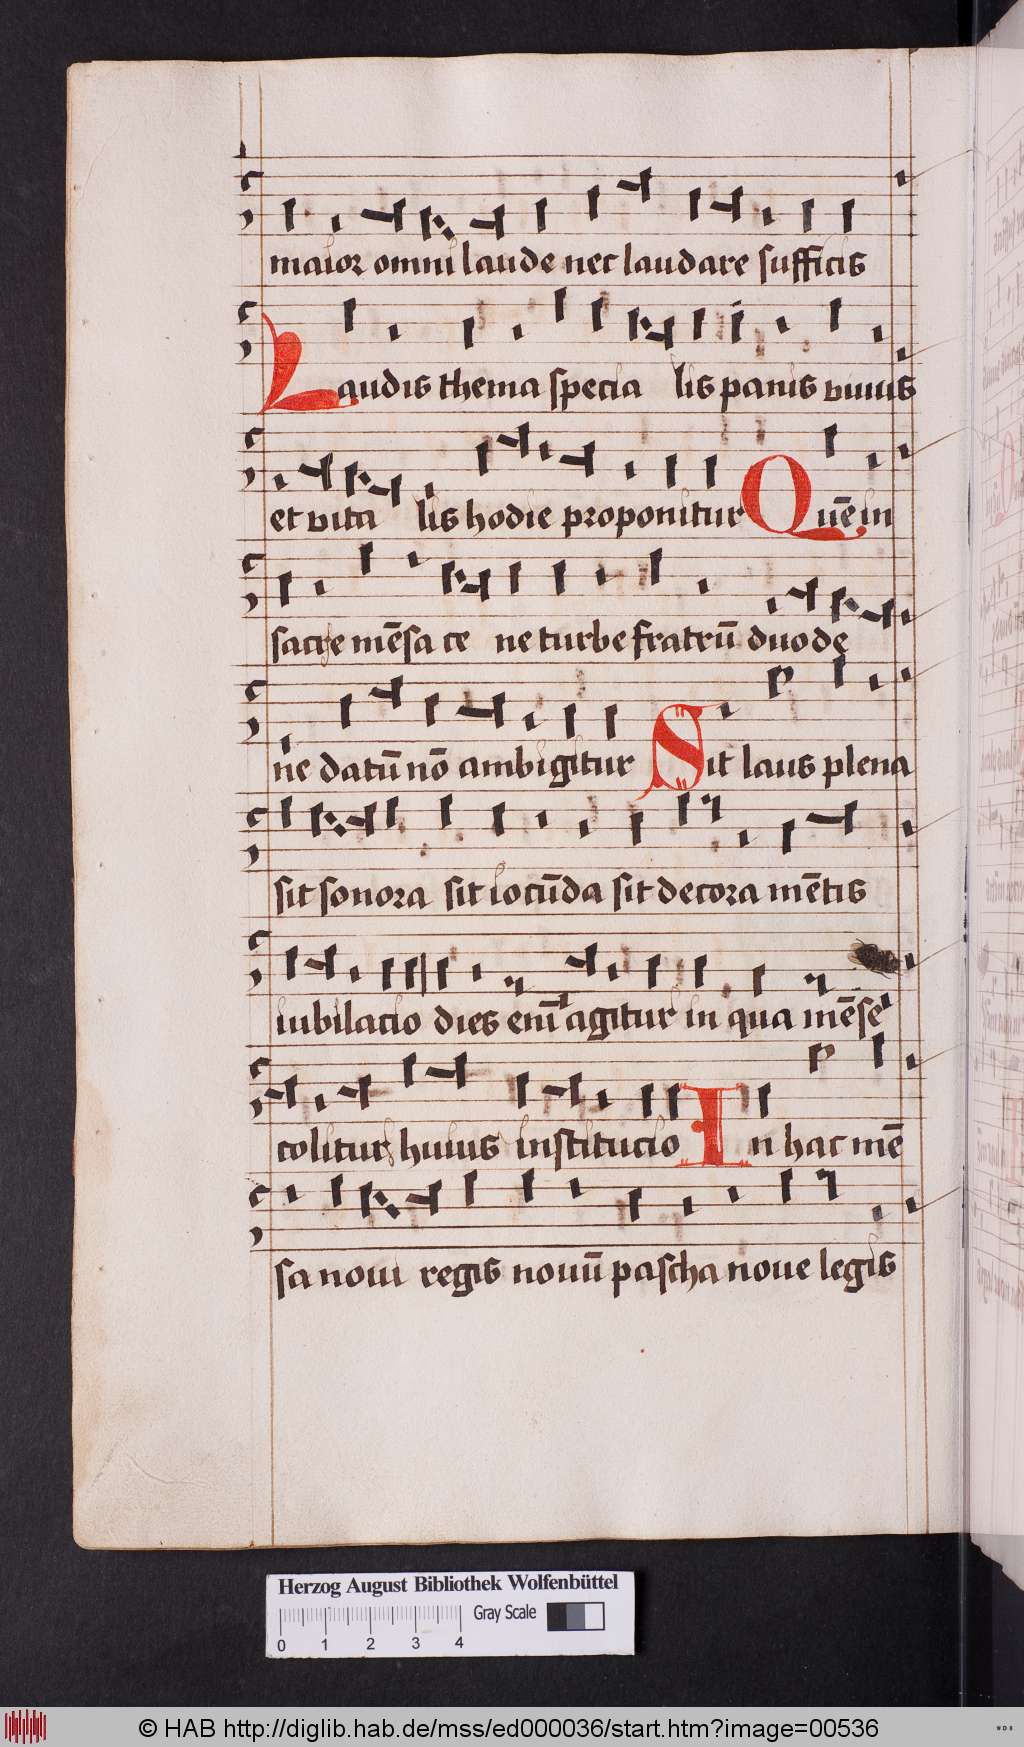 maior omni laude nec laudare sufficis
Laudis thema specia lis panis viuus
et vita lis hodie proponitur Quē in
sacre mēsa ce ne turbe fratrū duode
ne datū nō ambigitur Sit laus plena
sit sonora sit iocūda sit decora mētis
iubilacio dies enī agitur in qua mēse
colitur huius institucio In hac mē
sa noui regis nouū pascha noue legis
Herzog August Bibliothek Wolfenbüttel
Gray Scale
0 1 2 3 4
© HAB http://diglib.hab.de/mss/ed000036/start.htm?image=00536